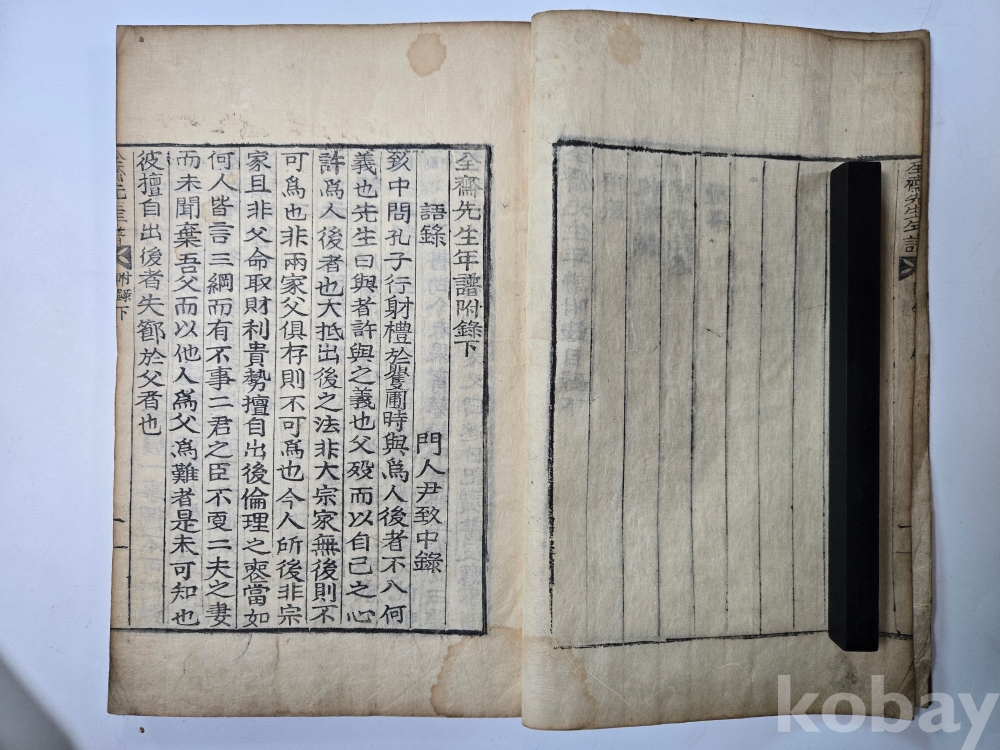 全齋先生年譜
全齋先生年譜附錄下
語錄 門人尹致中錄
致中問孔子行射禮於矍圃時與爲人後者不入何
義也先生曰與者許與之義也父歿而以自己之心
許爲人後者也大抵出後之法非大宗家無後則不
可爲也非兩家父俱存則不可爲也今人所後非宗
家且非父命取財利貴勢擅自出後倫理之喪當如
何人皆言三綱而有不事二君之臣不更二夫之妻
而未聞棄吾父而以他人爲父爲難者是未可知也
彼擅自出後者失節於父者也
附錄下
一
kobay